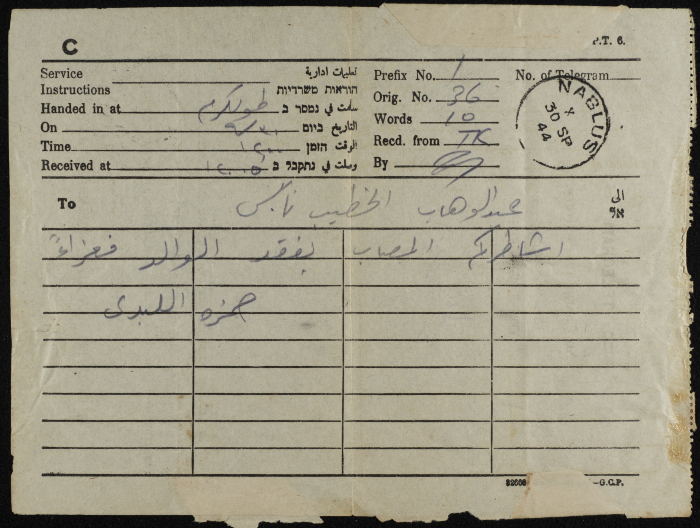 C
P.T. 6.
Service تعليمات ادارية
Instructions הוראות משרדיות
Handed in at طولكرم سلمت في נמסר ב
On ٩/٣٠ التاريخ ביום
Time ١٢٠٠ الوقت הזמן
Received at ١٢٠٥ وصلت في נתקבל ב
Prefix No. 1 No. of Telegram
Orig. No. 36
Words 10
Recd. from TK
By
NABLUS
X
30 SP
44
To عبدالوهاب الخطيب نابلس الى
אל
اشاطركم المصاب بفقد الوالد فعزاءً
حمزه اللبدي
-G.C.P.